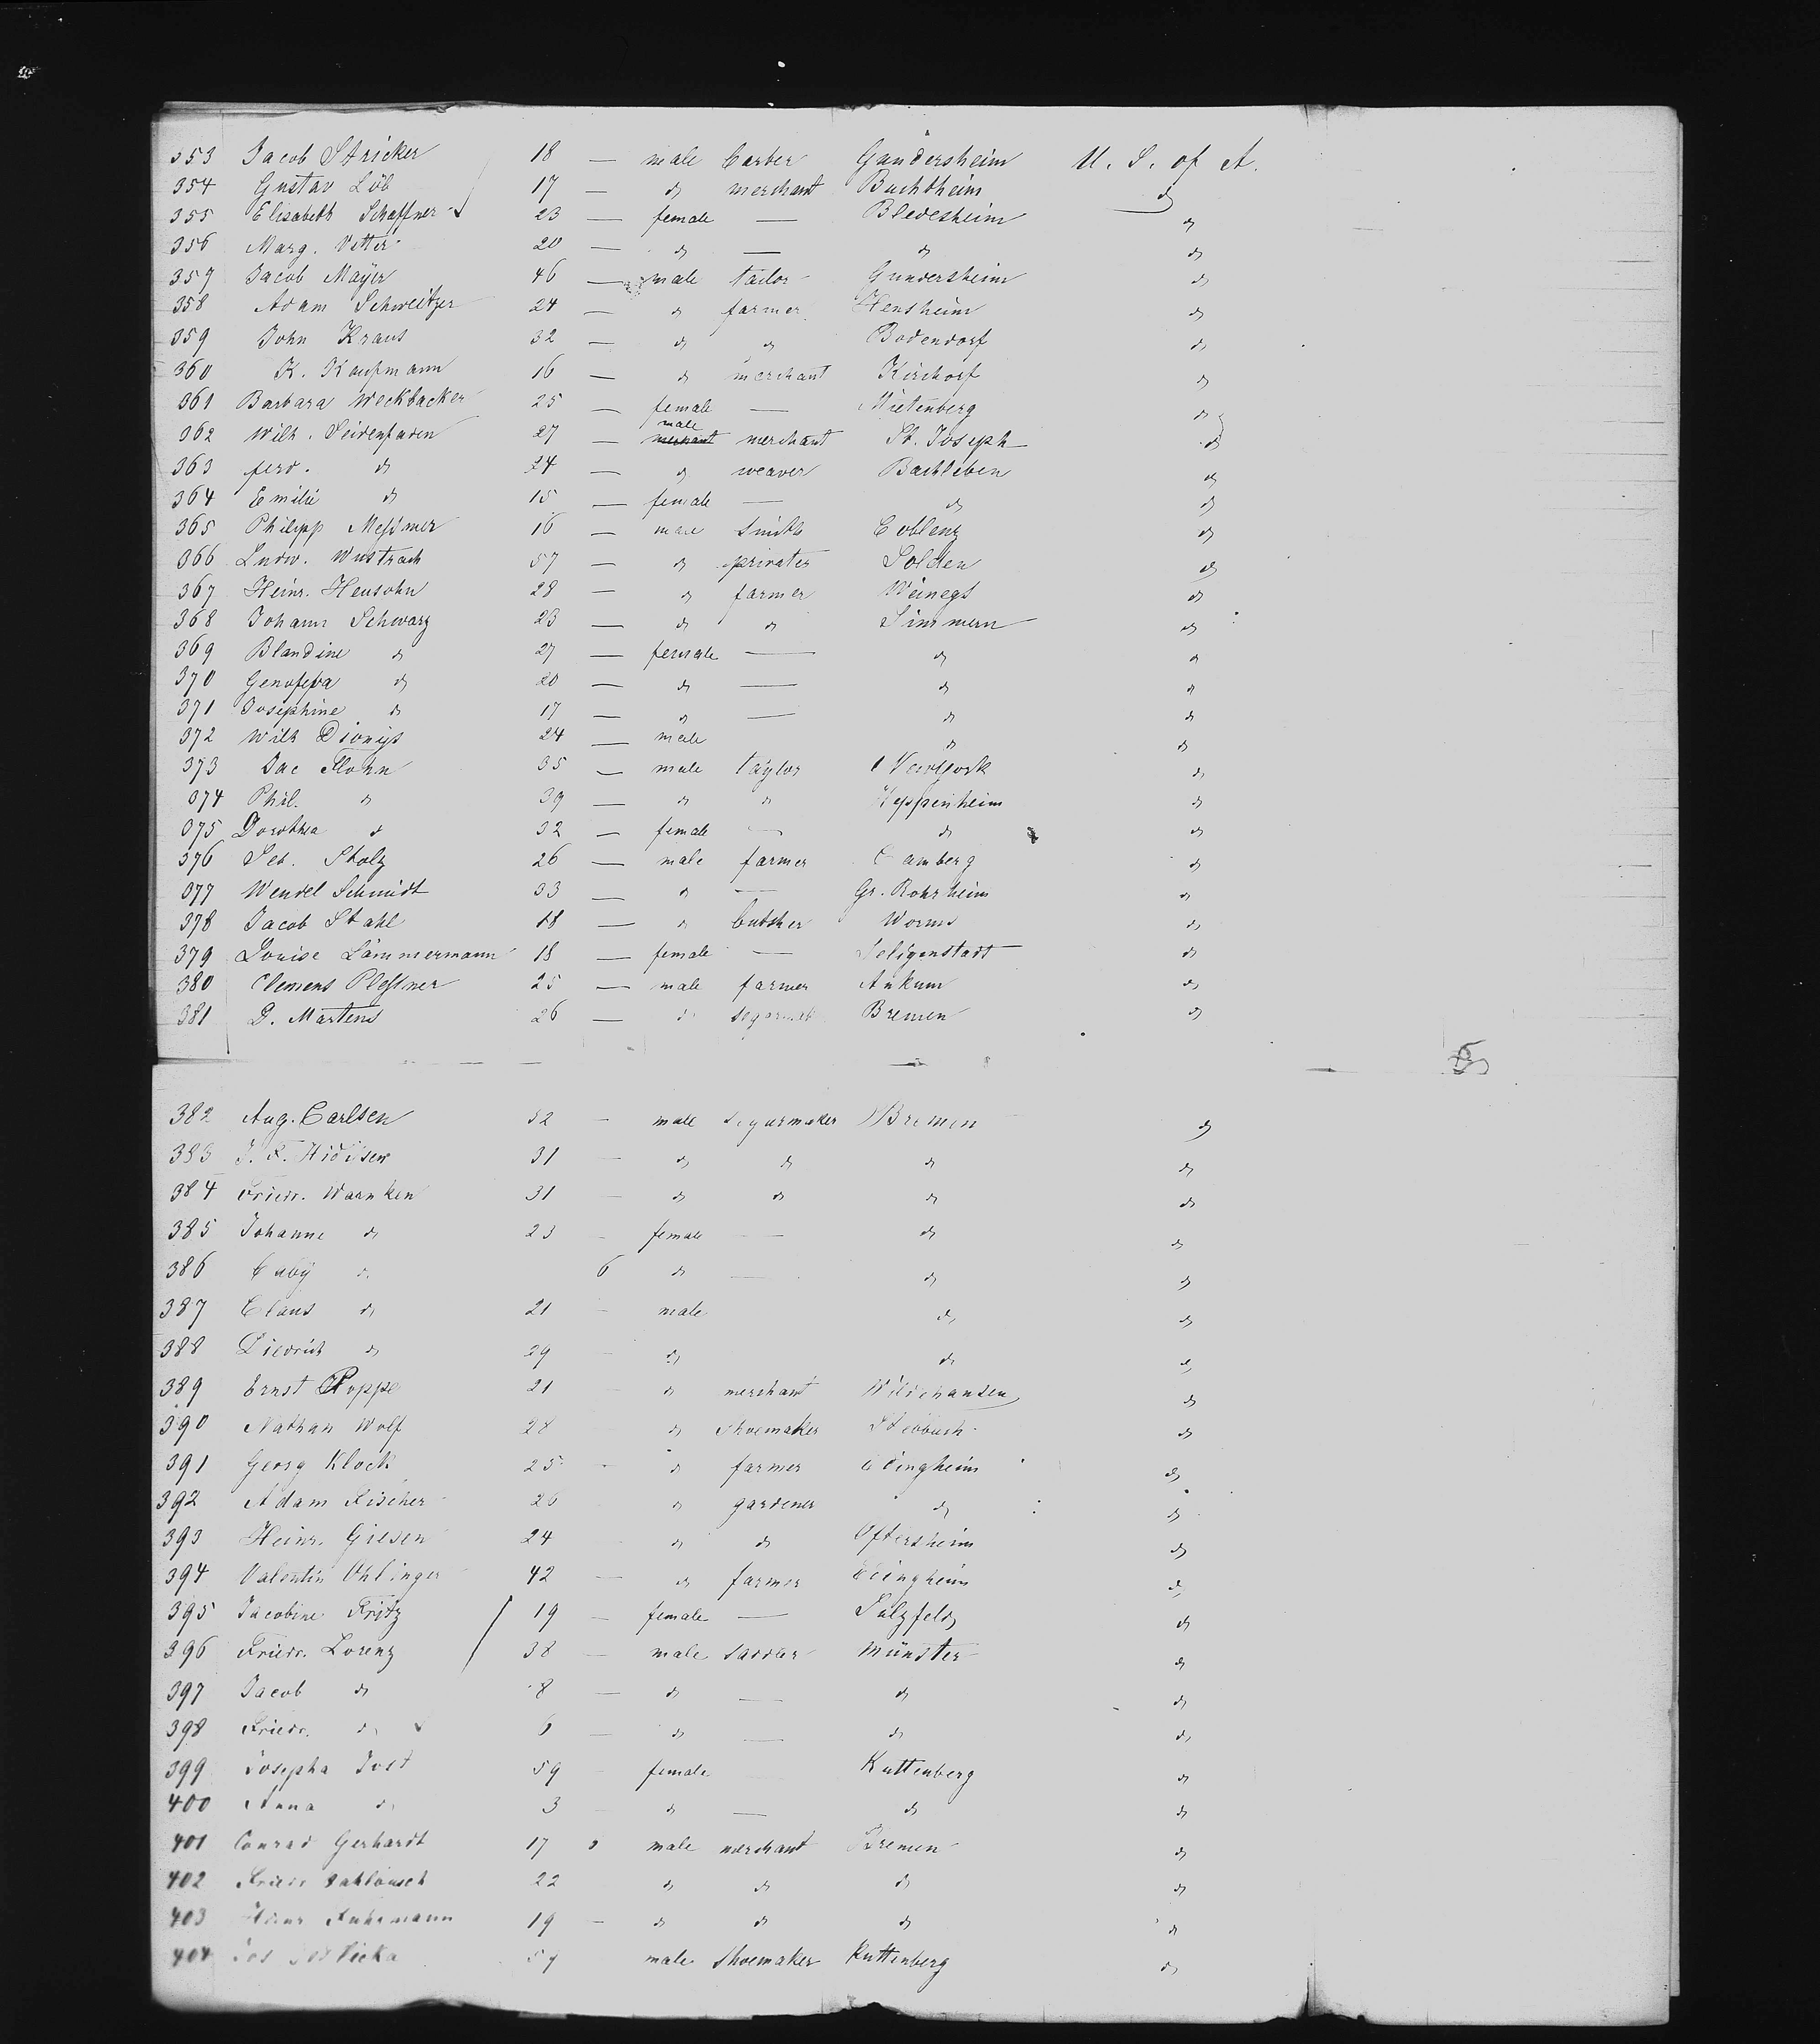 353 Jacob Stricker 18 — male barber Gundersheim U. S. of A.
354 Gustav Löb 17 — do merchant Bechtheim do
355 Elisabeth Schaffner 23 — female — Bledesheim do
356 Marg. Vetter 20 — do — do do
357 Jacob Mayer 46 — male tailor Gundersheim do
358 Adam Schweitzer 24 — do farmer Hensheim do
359 John Kraus 32 — do do Bodendorf do
360 K. Kaufmann 16 — do merchant Kirchorf do
361 Barbara Weckbacker 25 — female — Mietenberg do
362 Wilh. Seidenfaden 27 — male merchant St. Joseph do
363 Ferd. do 24 — do weaver Bachleben do
364 Emilie do 15 — female — do do
365 Philipp Messmer 16 — male Smith Coblenz do
366 Ludw. Wustrach 57 — do privatier Solden do
367 Heinr. Heusohn 28 — do farmer do
368 Johann Schwarz 23 — do do Simmern do
369 Blandine do 27 — female — do do
370 Genofefa do 20 — do — do do
371 Josephine do 17 — do — do do
372 Wilh Dionys 24 — male do do
373 Jac Flohn 35 — male taylor Newyork do
374 Phil. do 39 — do do Heppenheim do
375 Dorothea do 32 — female — do do
376 Seb. Stolz 26 — male farmer Camberg do
377 Wendel Schmidt 33 — do — Gr. Rohrheim do
378 Jacob Stahl 18 — do butsher Worms do
379 Louise Lämmermann 18 — female — Seligenstadt do
380 Clemens Plessner 25 — male farmer Ankum do
381 D. Martens 26 — do Bremen do
382 Aug. Carlsen 52 — male Segarmaker Bremen do
383 J. F. 31 — do do do do
384 Friedr. Warnken 31 — do do do do
385 Johanne do 23 — female — do do
386 baby do 6 do — do do
387 Claus do 21 — male do do
388 Diedrich do 29 — do do do
389 Ernst Poppe 21 do merchant Wildehausen do
390 Nathan Wolf 28 do Shoemaker do
391 Georg Klock 25 — do farmer Edingheim do
392 Adam Fischer 26 do gardener do do
393 Heinr. Giesen 24 do do Oftersheim do
394 Valentin Ohlinger 42 — do farmer Edingheim do
395 Jacobine Fritz 19 — female — Sulzfeld do
396 Friedr. Lorenz 38 — male Münster do
397 Jacob do 8 — do — do do
398 Friedr. do 6 — do — do do
399 Josepha Jost 59 — female Kuttenberg do
400 Anna do 3 — do — do do
401 Conrad Gerhardt 17 male merchant Bremen do
402 Friedr 22 do do do do
403 Heinr Fuhrmann 19 — do do do do
404 male Shoemaker Kuttenberg do